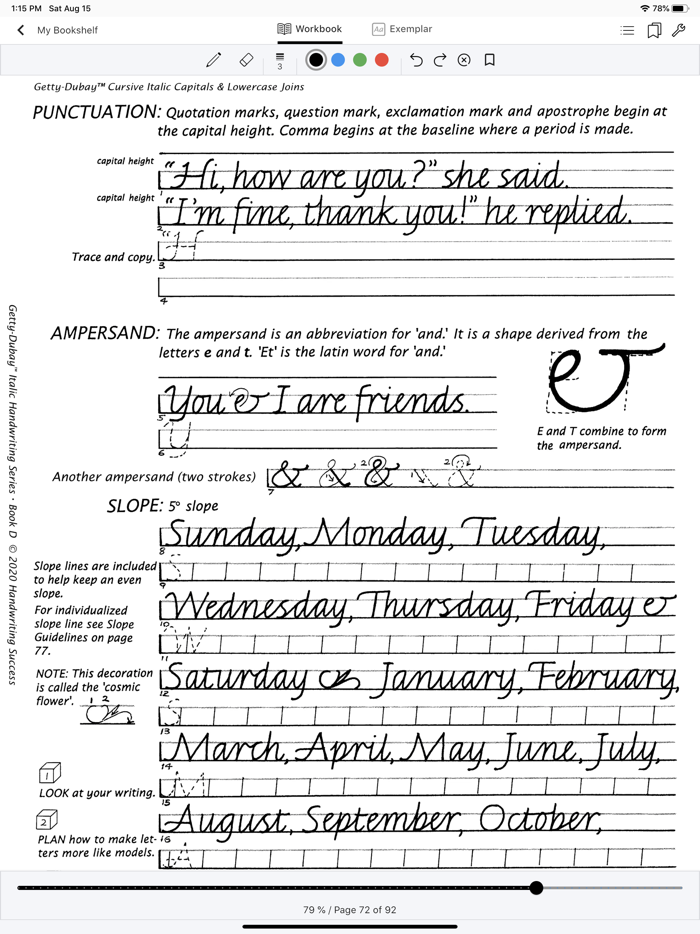 1:15 PM Sat Aug 15
78%
My Bookshelf
Workbook
Aa Exemplar
3
Getty-Dubay™ Cursive Italic Capitals & Lowercase Joins
PUNCTUATION: Quotation marks, question mark, exclamation mark and apostrophe begin at
the capital height. Comma begins at the baseline where a period is made.
capital height
"Hi, how are you?" she said.
1
capital height
"I'm fine, thank you!" he replied.
2
"H
Trace and copy.
3
4
AMPERSAND: The ampersand is an abbreviation for 'and.' It is a shape derived from the
letters e and t. 'Et' is the latin word for 'and.'
You & I are friends.
5
Y
6
&
E and T combine to form
the ampersand.
Another ampersand (two strokes)
& & 2& 2&
7
SLOPE: 5° slope
Sunday, Monday, Tuesday,
8
S
9
Slope lines are included
to help keep an even
slope.
Wednesday, Thursday, Friday &
10
W
11
For individualized
slope line see Slope
Guidelines on page
77.
Saturday January, February,
12
S
13
NOTE: This decoration
is called the 'cosmic
flower'.
1 2
March, April, May, June, July,
14
M
15
1
LOOK at your writing.
August, September, October,
16
A
2
PLAN how to make let-
ters more like models.
Getty-Dubay™ Italic Handwriting Series · Book D © 2020 Handwriting Success
79 % / Page 72 of 92